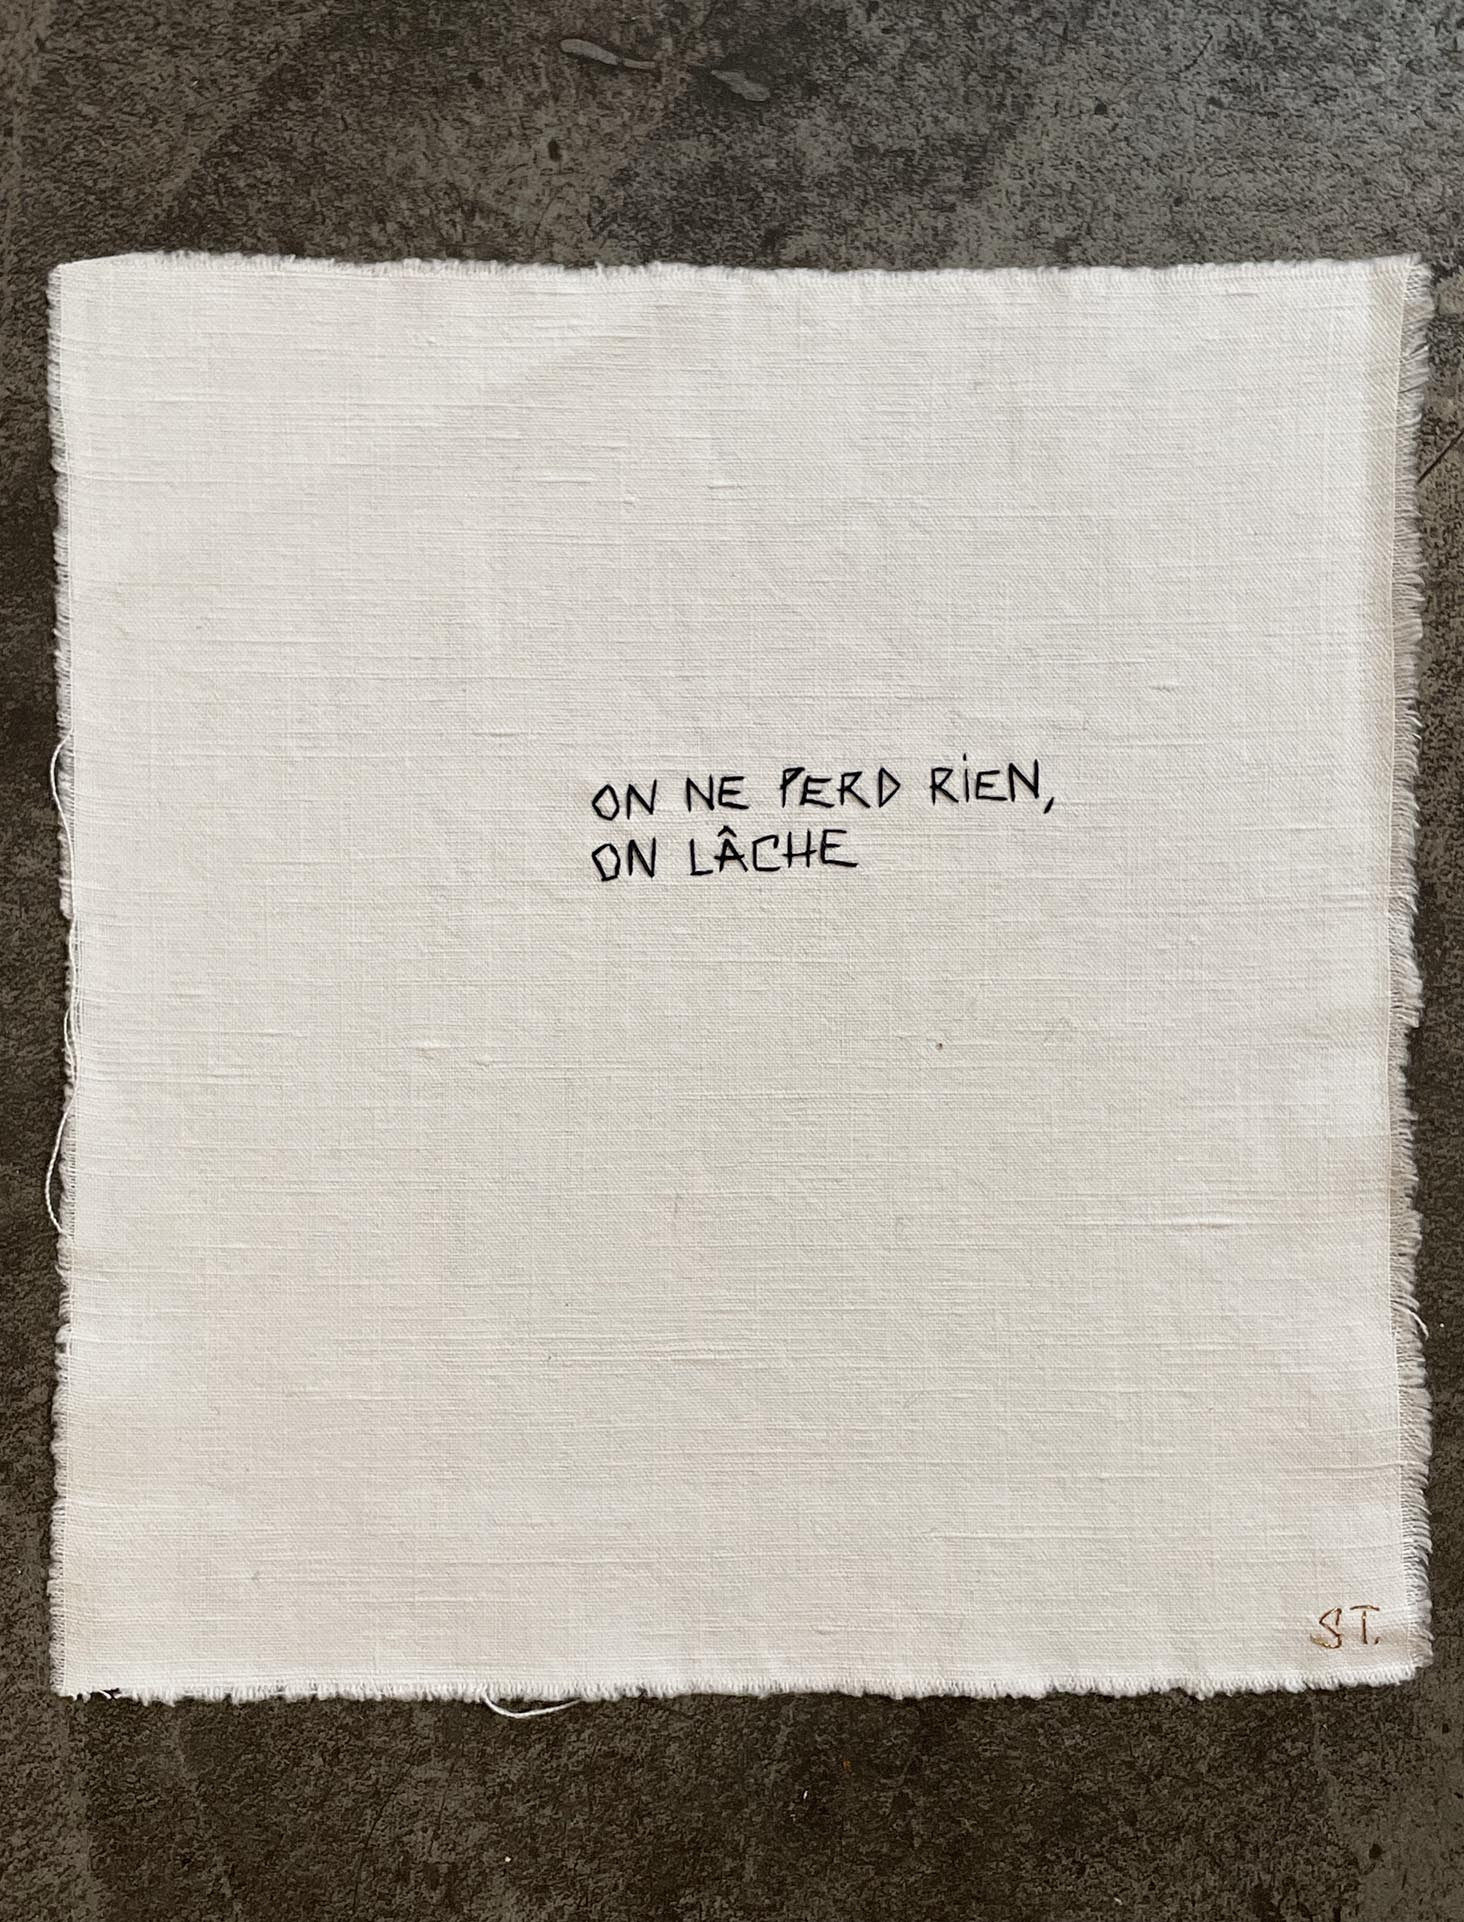 ON NE PERD RiEN,
ON LÂCHE
ST.